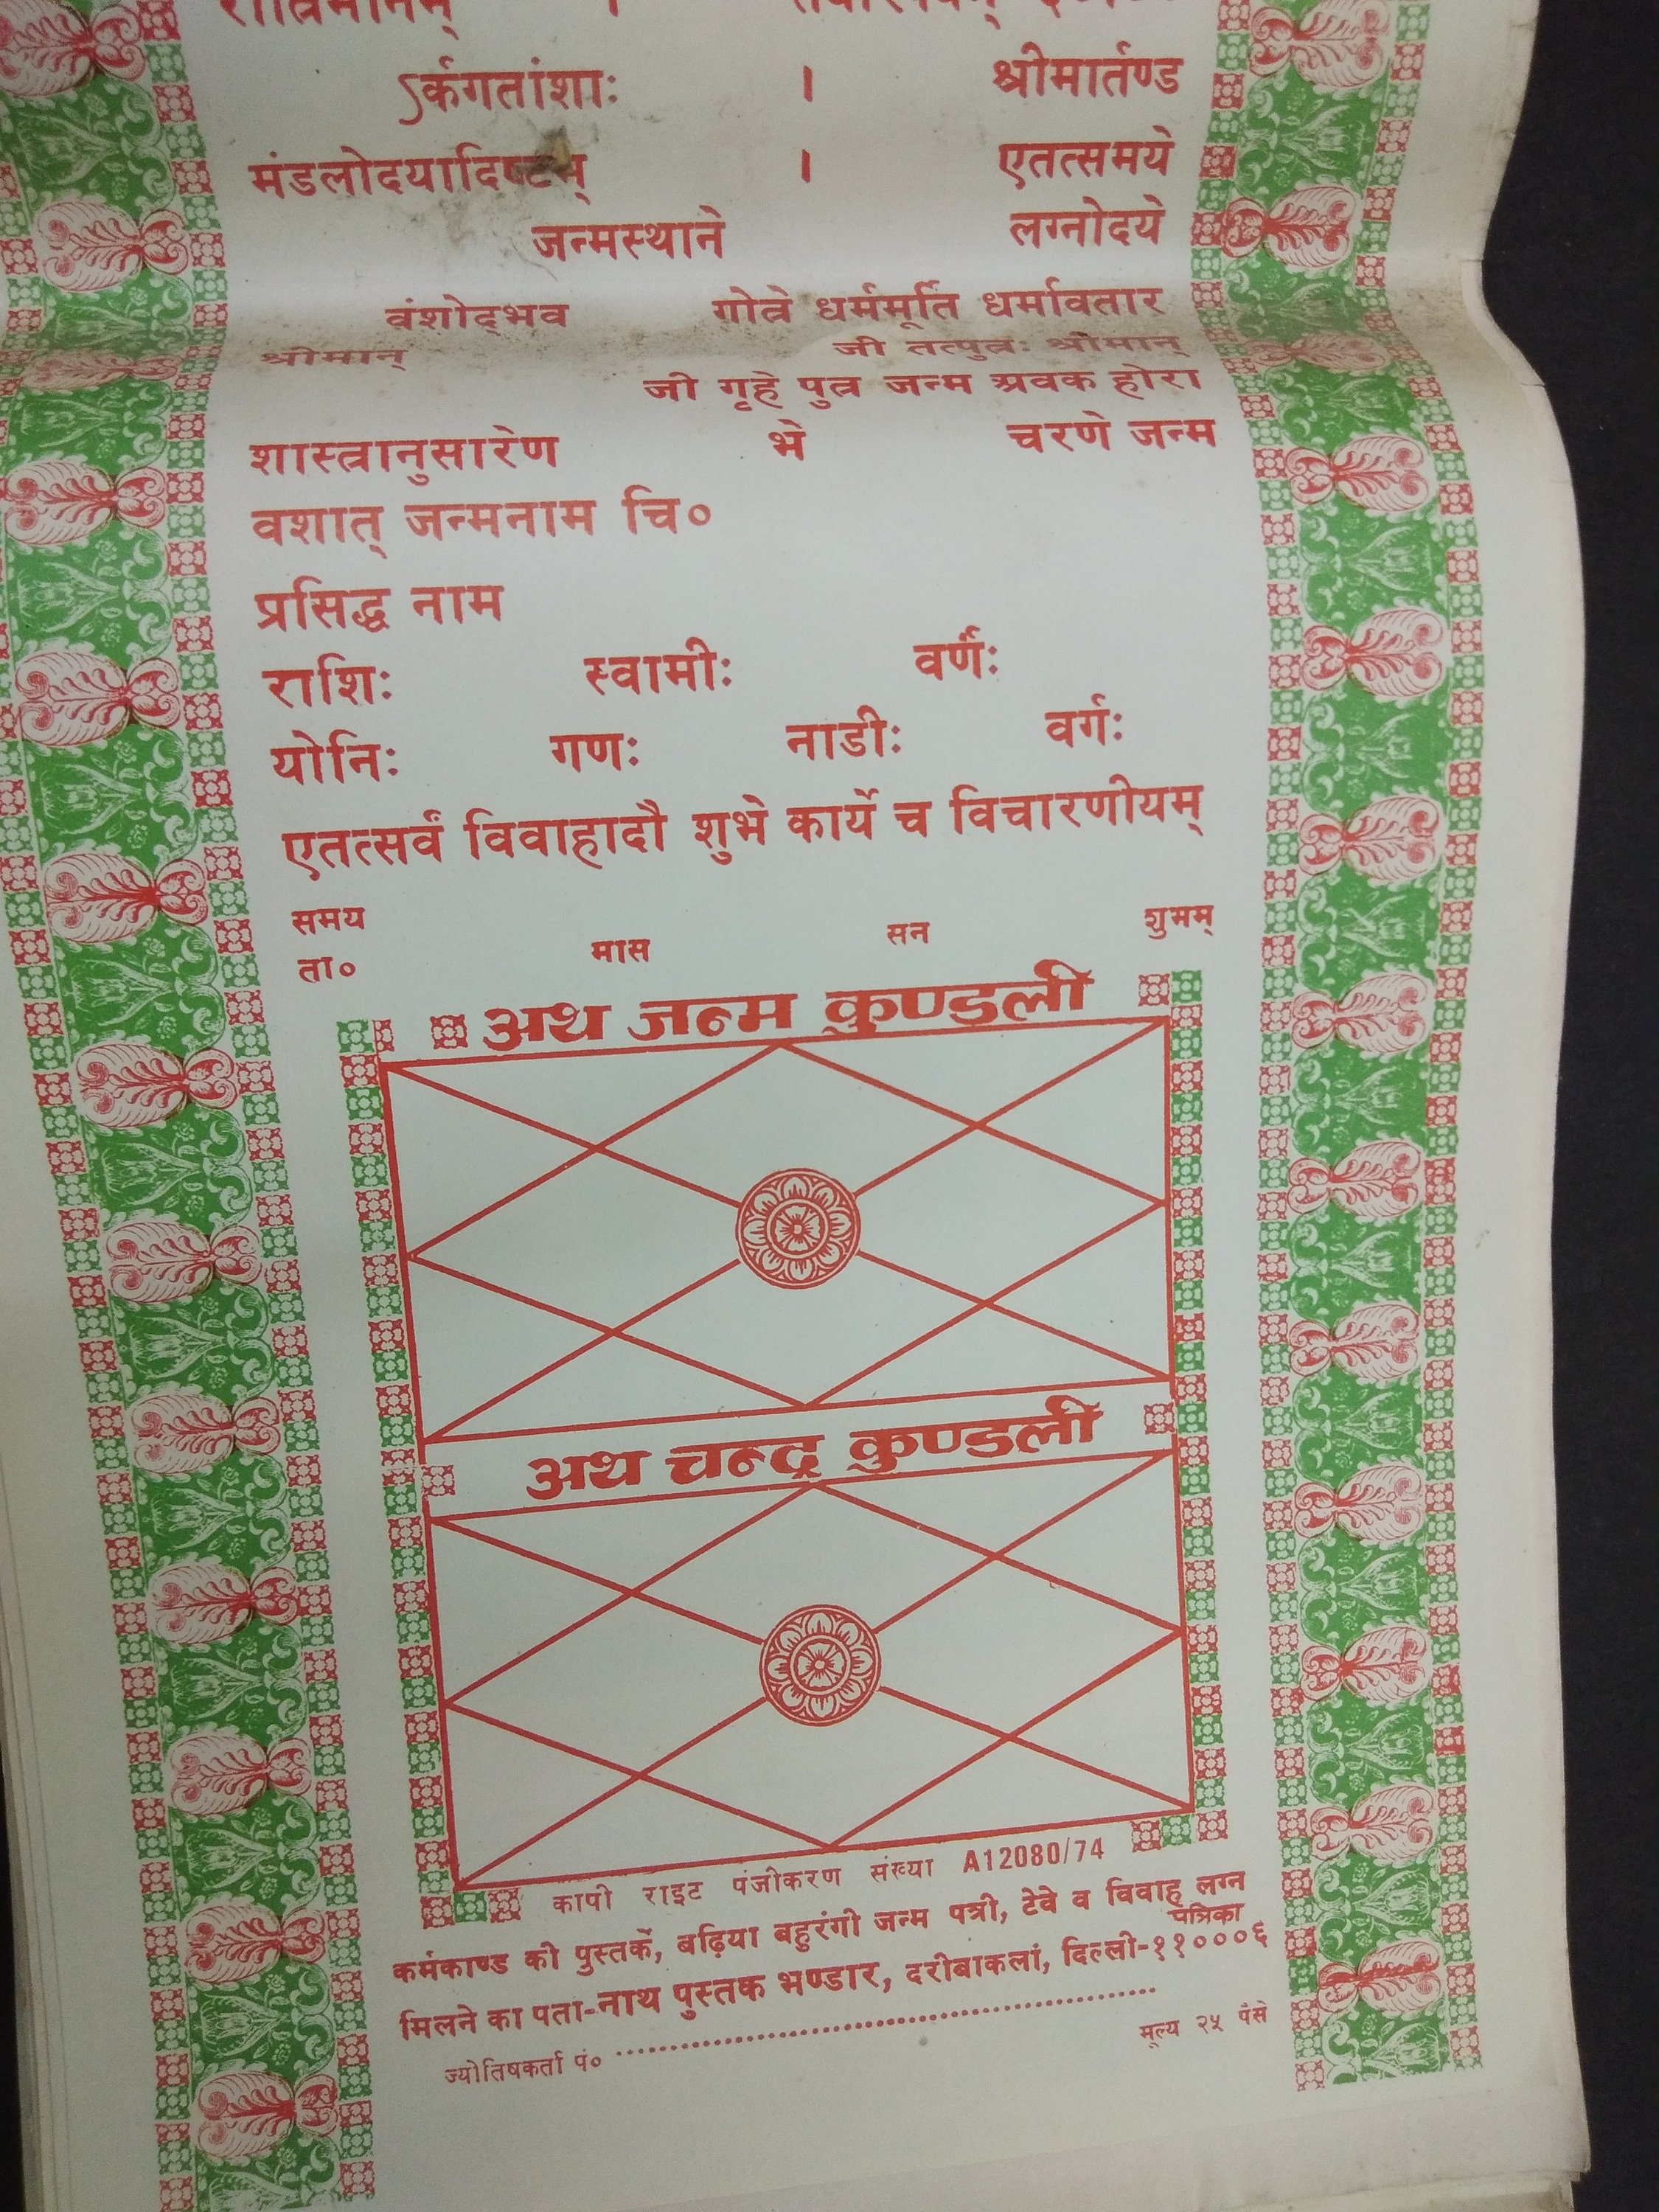 रात्रिमानम् ।
ऽर्कगतांशाः । श्रीमार्तण्ड
मंडलोदयादिष्टम् । एतत्समये
जन्मस्थाने लग्नोदये
वंशोद्भव गोत्रे धर्ममूर्ति धर्मावतार
श्रीमान् जी तत्पुत्रः श्रीमान्
जी गृहे पुत्र जन्म अवक होरा
शास्त्रानुसारेण भे चरणे जन्म
वशात् जन्मनाम चि०
प्रसिद्ध नाम
राशिः स्वामीः वर्णः
योनिः गणः नाडीः वर्गः
एतत्सर्वं विवाहादौ शुभे कार्ये च विचारणीयम्
समय शुभम्
ता० मास सन
अथ जन्म कुण्डली
अथ चन्द्र कुण्डली
कापी राइट पंजीकरण संख्या A12080/74
कर्मकाण्ड की पुस्तकें, बढ़िया बहुरंगी जन्म पत्री, टेवे व विवाह लग्न
पत्रिका
मिलने का पता-नाथ पुस्तक भण्डार, दरीबाकलां, दिल्ली-११०००६
ज्योतिषकर्ता पं० ................................................
मूल्य २५ पैसे